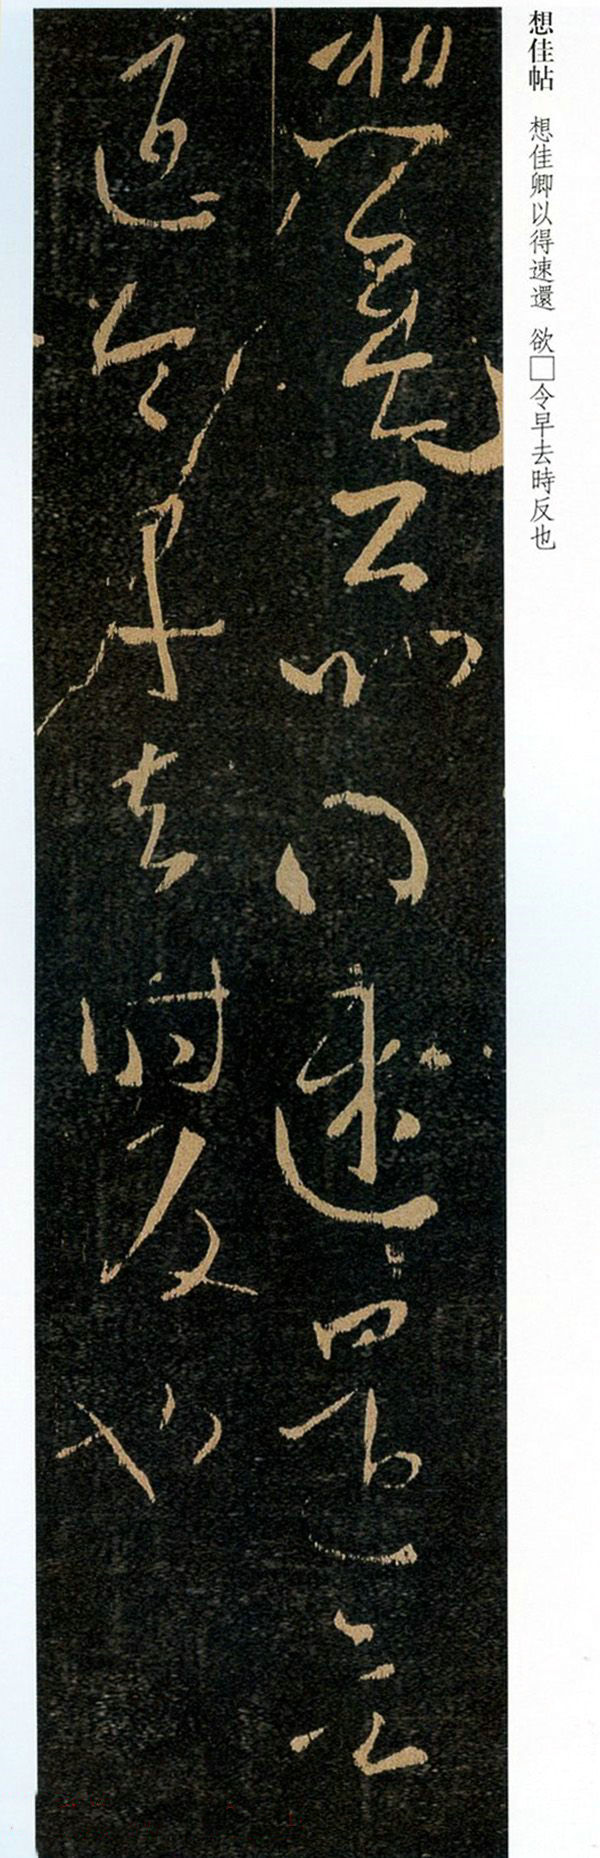 想佳帖 想佳卿以得速還 欲□令早去時反也
想以得速還
令早去時反也